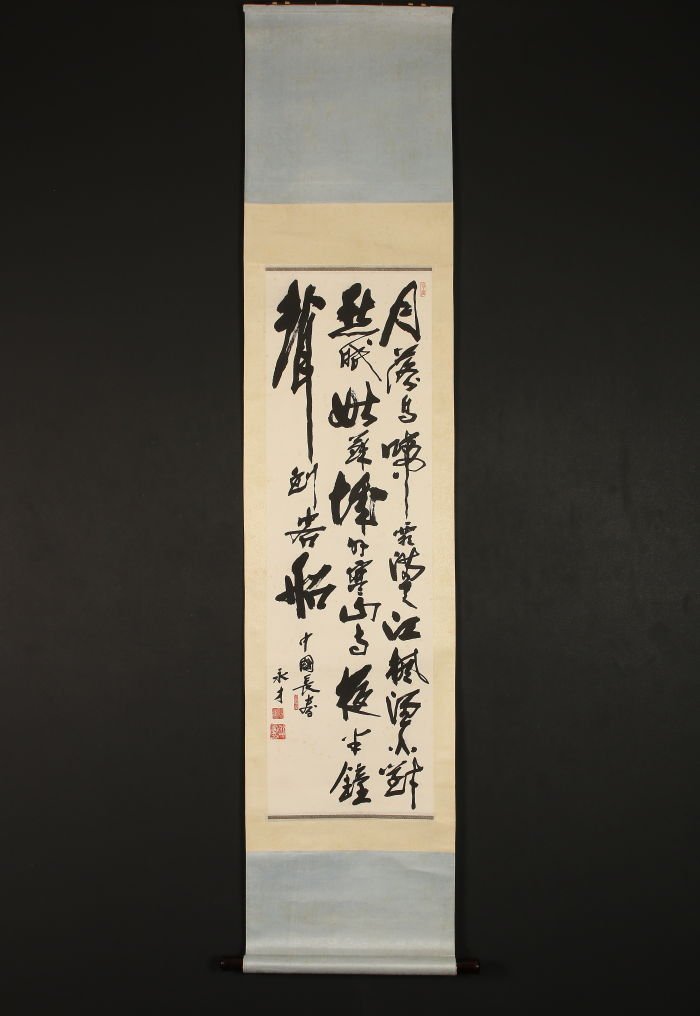 月落烏啼霜滿天江楓漁火對
愁眠姑蘇城外寒山寺夜半鐘
聲到客船
中國長壽
永才